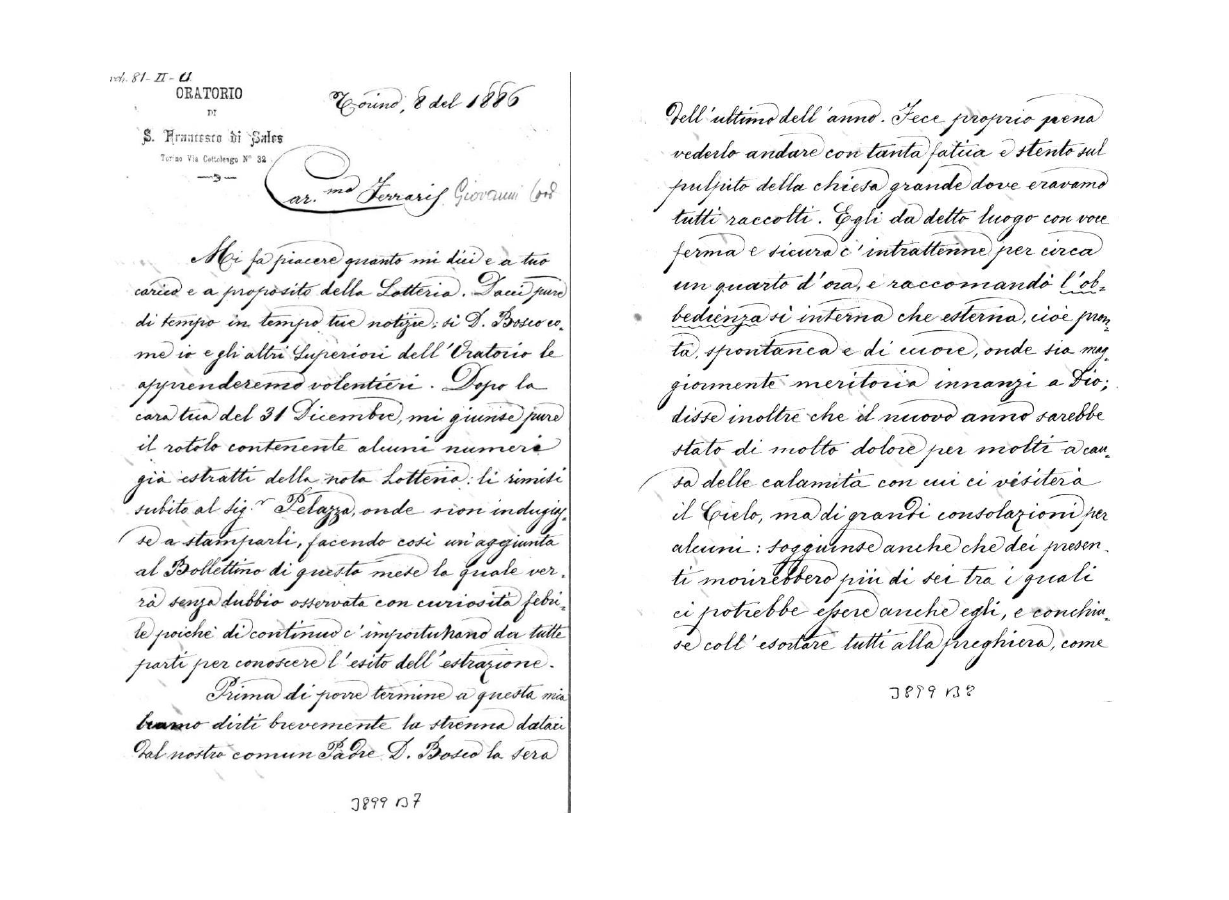 vol. 81-II-
ORATORIO
DI
S. Francesco di Sales
Torino Via Cottolengo N° 32
Torino, 8 del 1886
Car.mo Ferraris Giovanni
Mi fa piacere quanto mi dici e a tuo
carico e a proposito della Lotteria. Dacci pure
di tempo in tempo tue notizie; si D. Bosco co-
me io e gli altri Superiori dell'Oratorio le
apprenderemo volentieri. Dopo la
cara tua del 31 Dicembre, mi giunse pure
il rotolo contenente alcuni numeri
già estratti della nota Lotteria: li rimisi
subito al Sig.r Pelazza, onde non indugias-
se a stamparli, facendo così un'aggiunta
al Bollettino di questo mese la quale ver-
rà senza dubbio osservata con curiosità febri-
le poichè di continuo c'importunano da tutte
parti per conoscere l'esito dell'estrazione.
Prima di porre termine a questa mia
bramo dirti brevemente la strenna dataci
dal nostro comun Padre D. Bosco la sera
J899 B7
dell'ultimo dell'anno. Fece proprio pena
vederlo andare con tanta fatica e stento sul
pulpito della chiesa grande dove eravamo
tutti raccolti. Egli da detto luogo con voce
ferma e sicura c'intrattenne per circa
un quarto d'ora, e raccomandò l'ob-
bedienza sì interna che esterna, cioè pron-
ta, spontanea e di cuore, onde sia mag-
giormente meritoria innanzi a Dio;
disse inoltre che il nuovo anno sarebbe
stato di molto dolore per molti a cau-
sa delle calamità con cui ci visiterà
il Cielo, ma di grandi consolazioni per
alcuni: soggiunse anche che dei presen-
ti morirebbero più di sei tra i quali
ci potrebbe essere anche egli, e conchiu-
se coll'esortare tutti alla preghiera, come
J899 B8